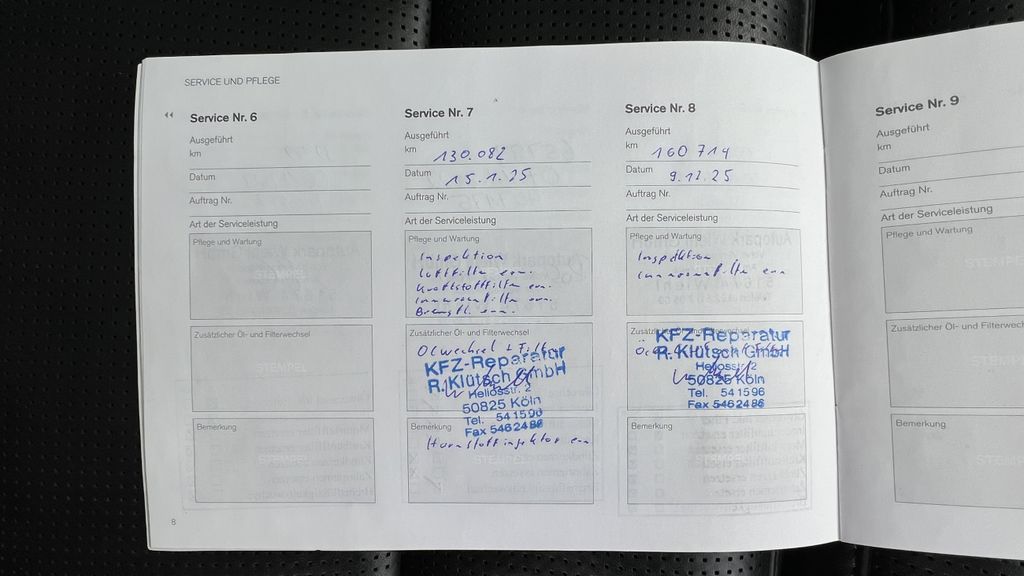 SERVICE UND PFLEGE
Service Nr. 6
Ausgeführt
km
Datum
Auftrag Nr.
Art der Serviceleistung
Pflege und Wartung
STEMPEL
Zusätzlicher Öl- und Filterwechsel
STEMPEL
Bemerkung
Service Nr. 7
Ausgeführt
km 130.082
Datum 15.1.25
Auftrag Nr.
Art der Serviceleistung
Pflege und Wartung
Inspektion
Luftfilter ern.
Kraftstofffilter ern.
Innenraumfilter ern.
Bremsfl. ern.
Zusätzlicher Öl- und Filterwechsel
Ölwechsel + Filter
KFZ-Reparatur
R. Klütsch GmbH
Heliosstr. 2
50825 Köln
Tel. 541596
Fax 5462486
Bemerkung
Harnstoffinjektor ern
Service Nr. 8
Ausgeführt
km 160 714
Datum 9.12.25
Auftrag Nr.
Art der Serviceleistung
Pflege und Wartung
Inspektion
Innenraumfilter ern
KFZ-Reparatur
R. Klütsch GmbH
Heliosstr. 2
50825 Köln
Tel. 541596
Fax 5462486
Bemerkung
Service Nr. 9
Ausgeführt
km
Datum
Auftrag Nr.
Art der Serviceleistung
Pflege und Wartung
STEMPEL
Zusätzlicher Öl- und Filterwechsel
STEMPEL
Bemerkung
STEMPEL
8